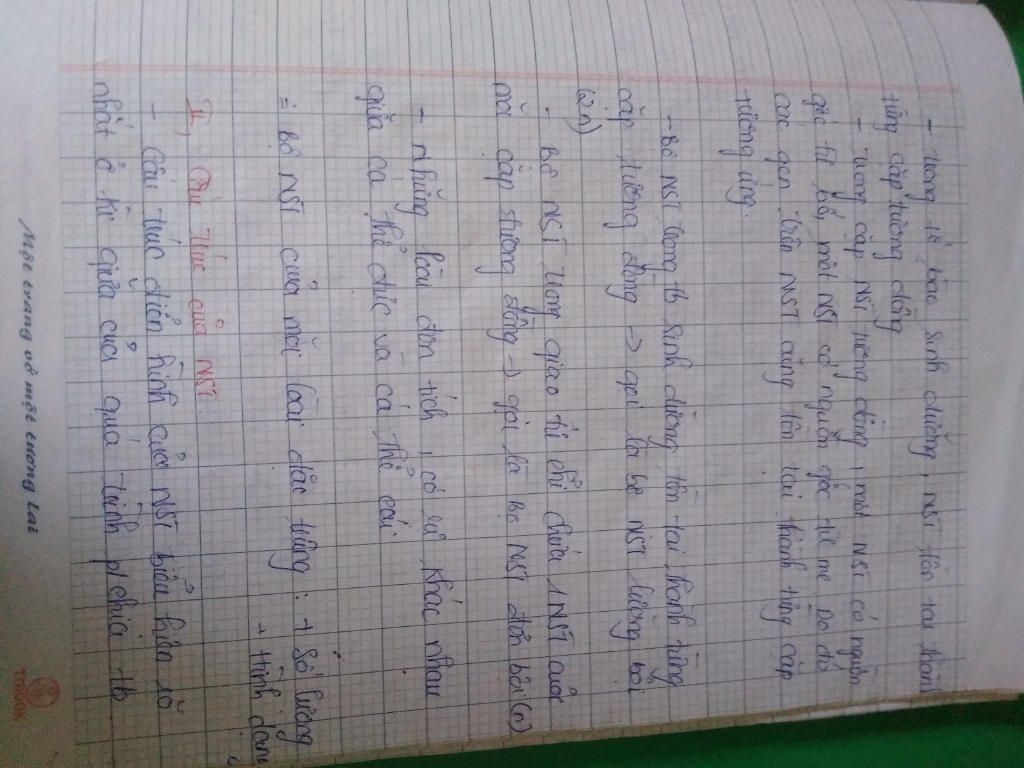 - trong tế bào sinh dưỡng, NST tồn tại thành
từng cặp tương đồng
- trong cặp NST tương đồng, một NST có nguồn
gốc từ bố, một NST có nguồn gốc từ mẹ Do đó
các gen trên NST cũng tồn tại thành từng cặp
tương ứng.
- Bộ NST trong tb sinh dưỡng tồn tại thành từng
cặp tương đồng → gọi là bộ NST lưỡng bội
(2n)
- Bộ NST trong giao tử chỉ chứa 1 NST của
mỗi cặp tương đồng → gọi là bộ NST đơn bội (n)
- Những loài đơn tính, có sự khác nhau
giữa cá thể đực và cá thể cái
= Bộ NST của mỗi loài đặc trưng: + Số lượng
+ Hình dạng
II, Cấu trúc của NST
- Cấu trúc điển hình của NST biểu hiện rõ
nhất ở kì giữa của quá trình phân chia tb
Một trang vở một tương lai